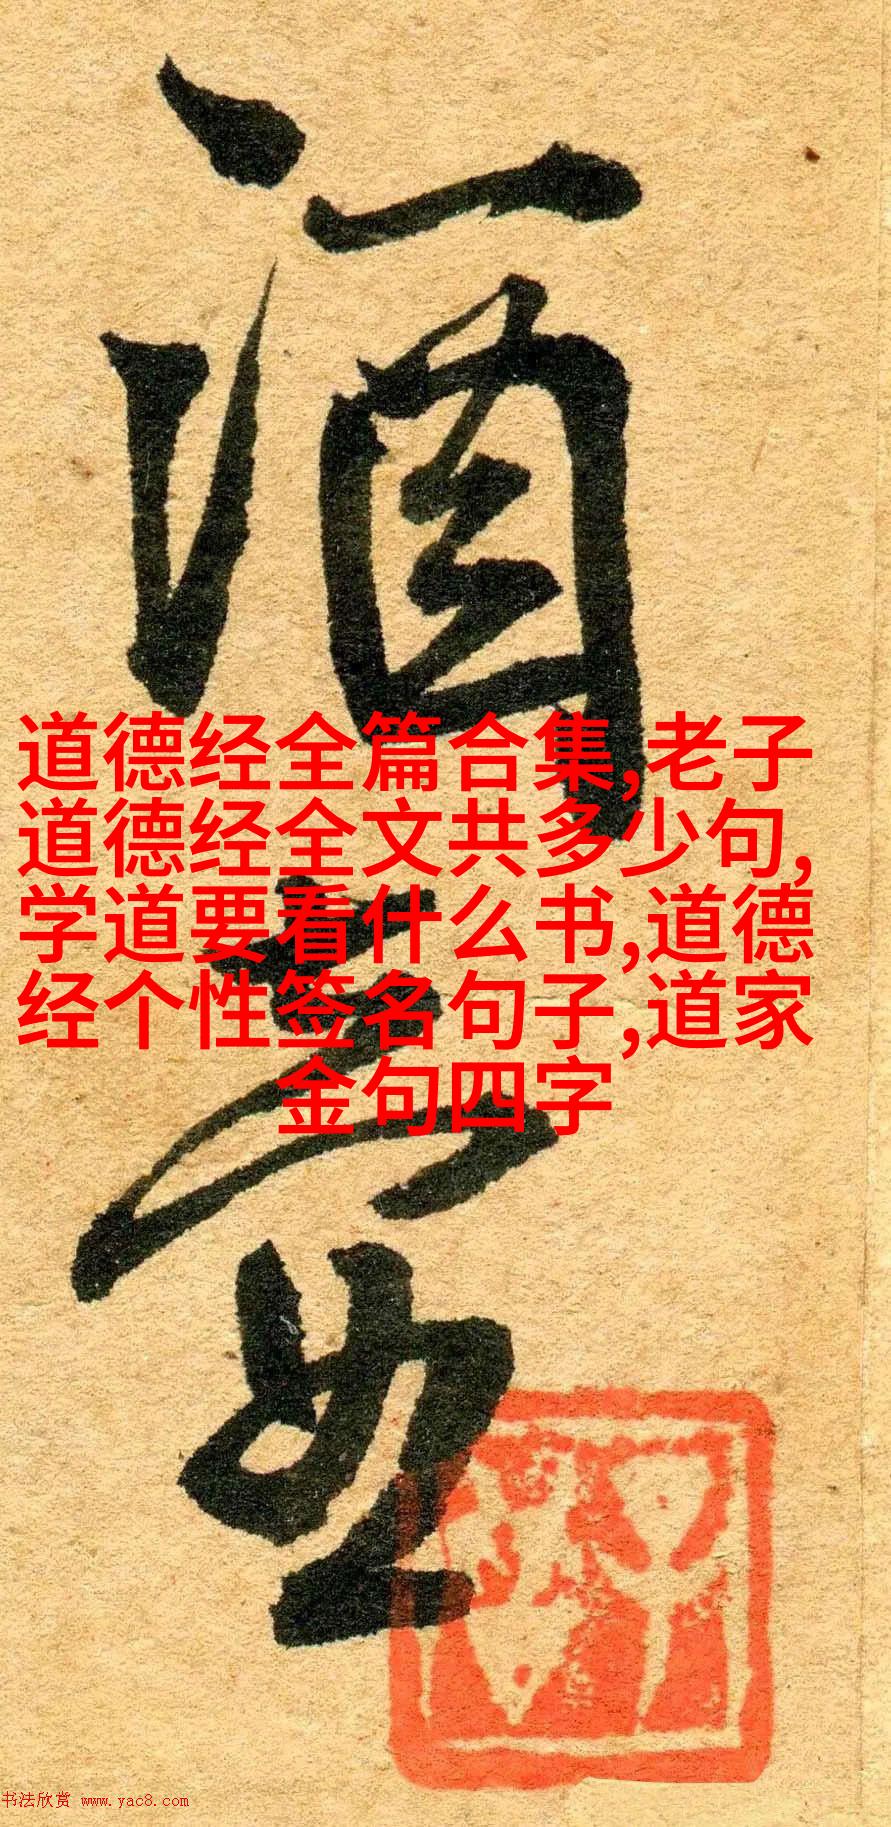 酒
道德经全篇合集,老子
道德经全文共多少句,
学道要看什么书,道德
经个性签名句子,道家
金句四字
书法欣赏 www.yac8.com